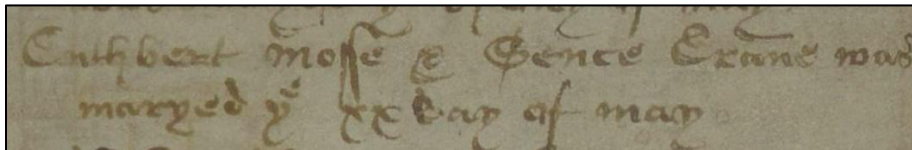 of may
Cuthbert Mosse & Gence Crane was
maryed yͤ xx day of may